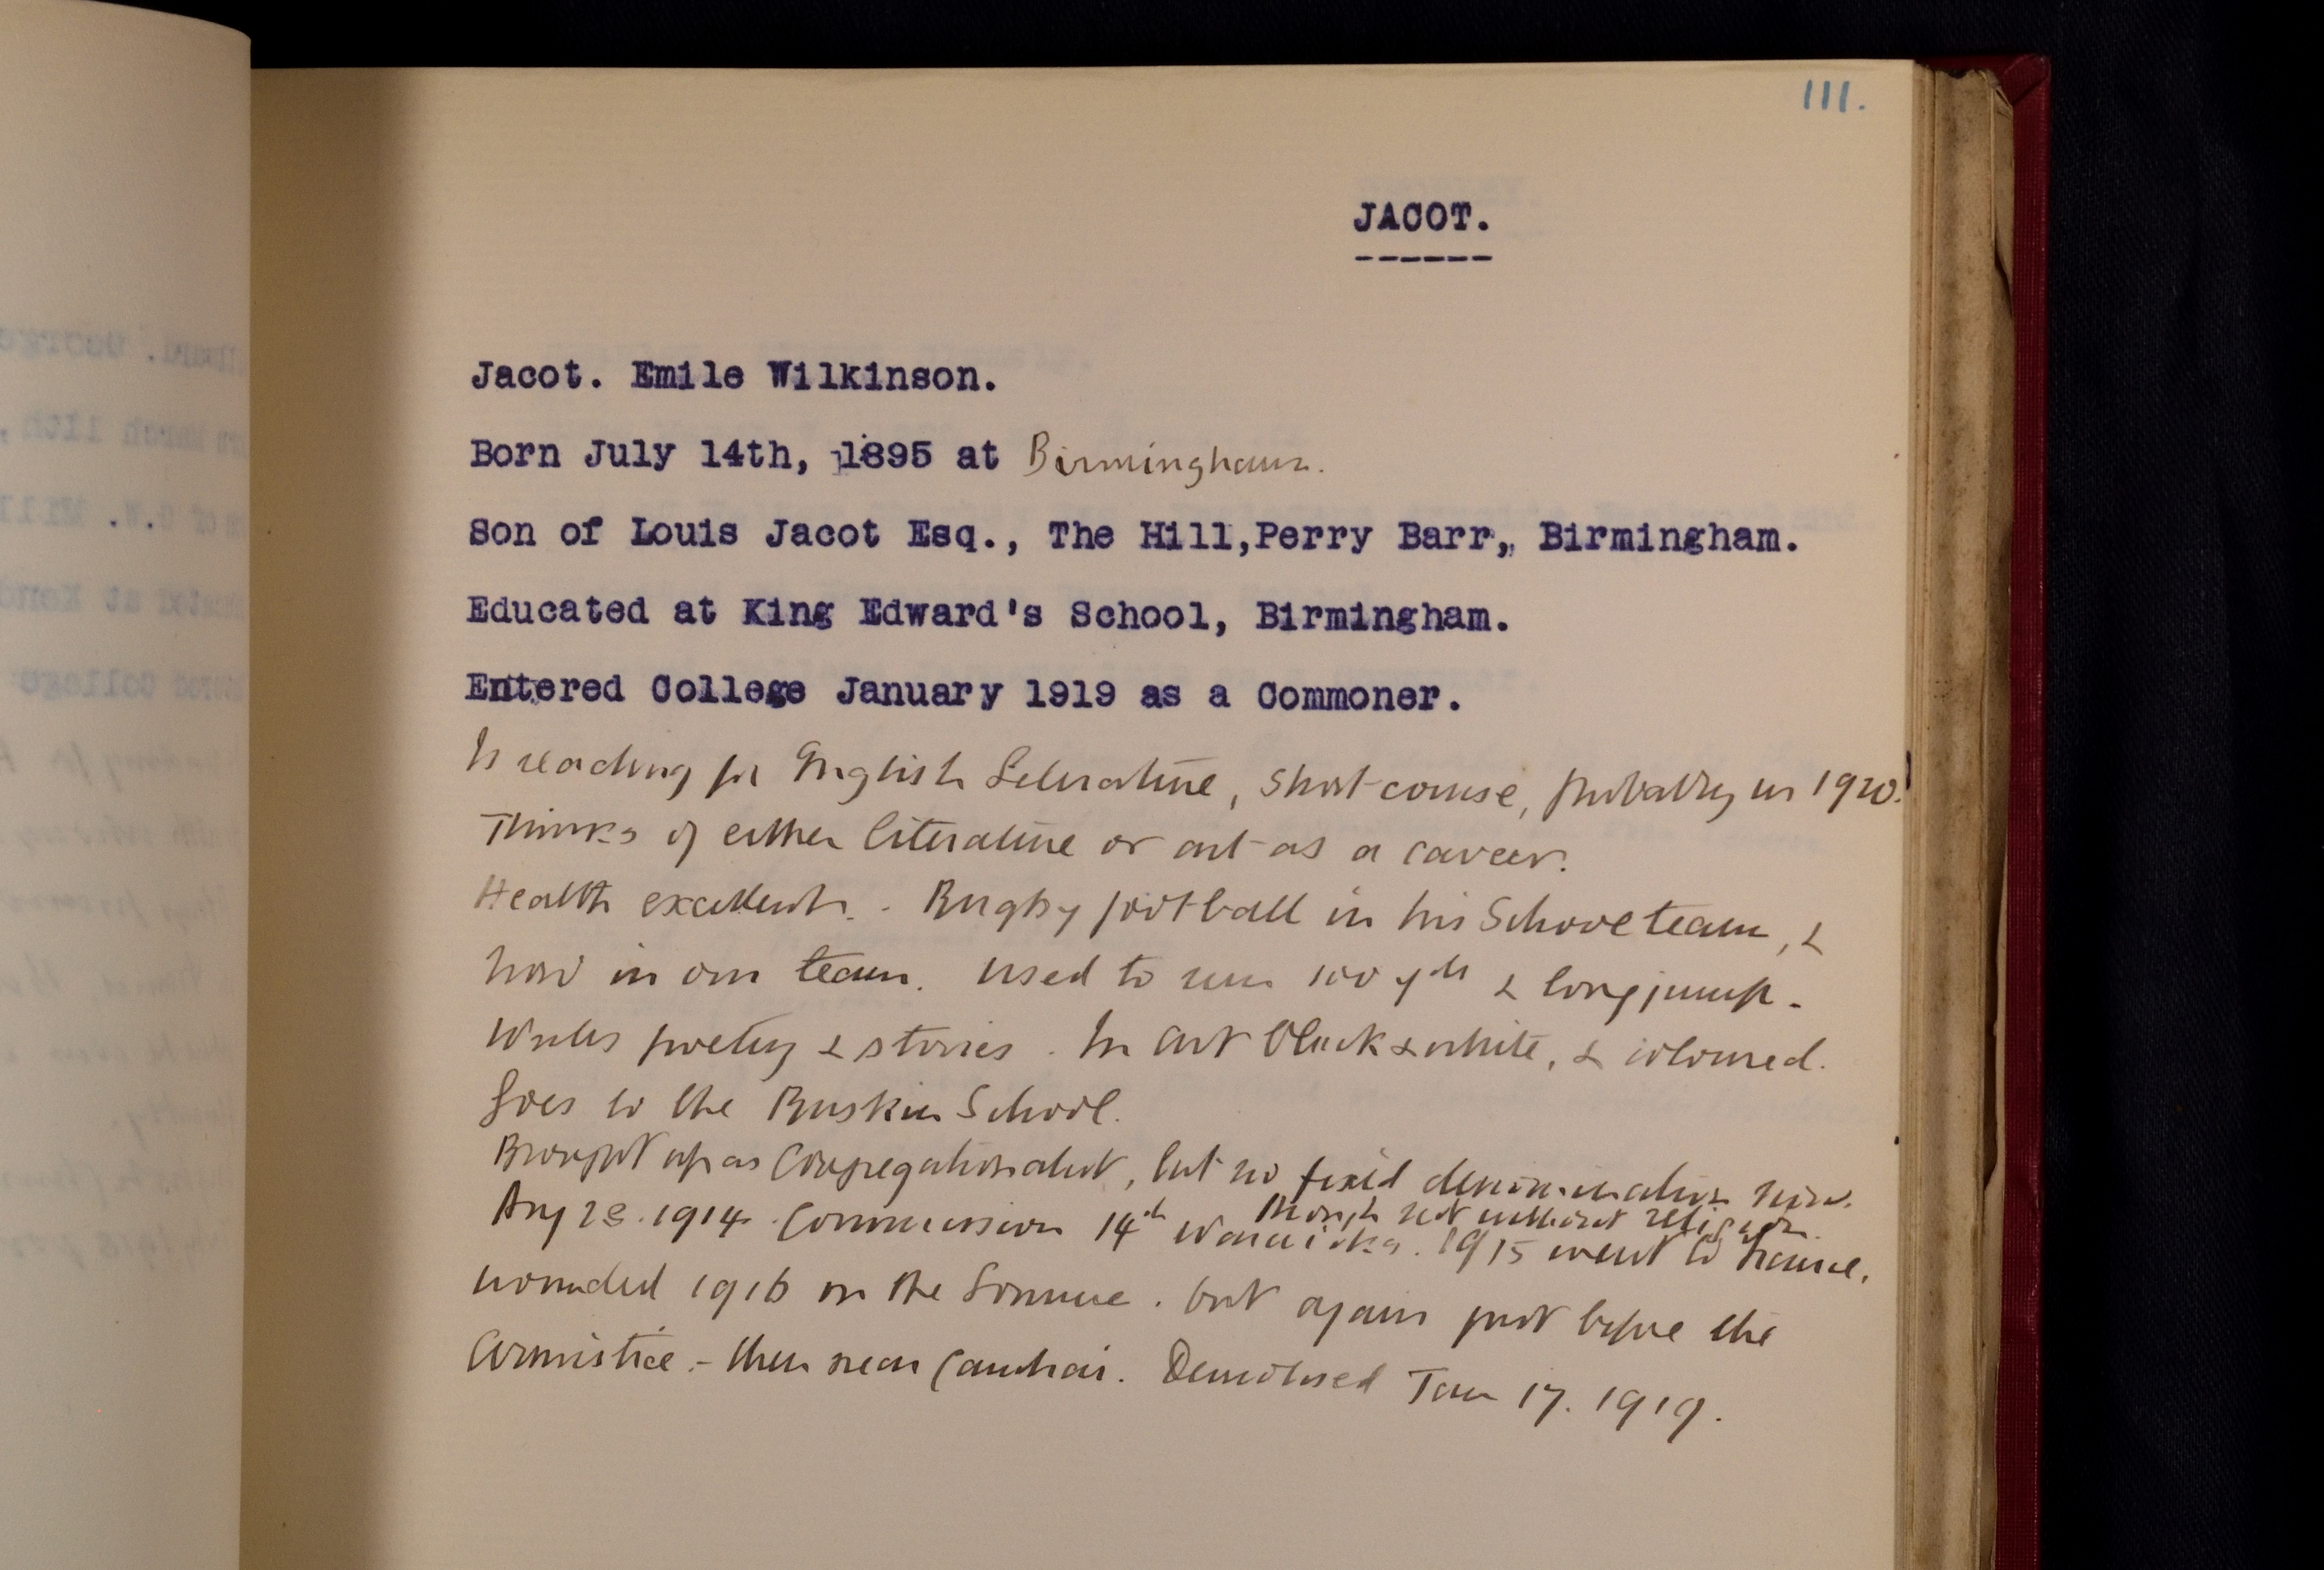 111.
JACOT.
------
Jacot. Emile Wilkinson.
Born July 14th, 1895 at Birmingham.
Son of Louis Jacot Esq., The Hill,Perry Barr, Birmingham.
Educated at King Edward's School, Birmingham.
Entered College January 1919 as a Commoner.
Is reading for English Literature, short course, probably in 1920.
Thinks of either literature or art as a career.
Health excellent. Rugby football in his School team, &
now in our team. Used to run 100 yds & long jump.
Writes poetry & stories. In art black & white, & coloured.
Goes to the Ruskin School.
Brought up as Congregationalist, but no fixed denomination now.
though not without religion.
Aug 28. 1914. Commission 14th Warwicks. 1915 went to France.
wounded 1916 on the Somme. but again just before the
Armistice - then near Cambrai. Demobised Jan 17. 1919.